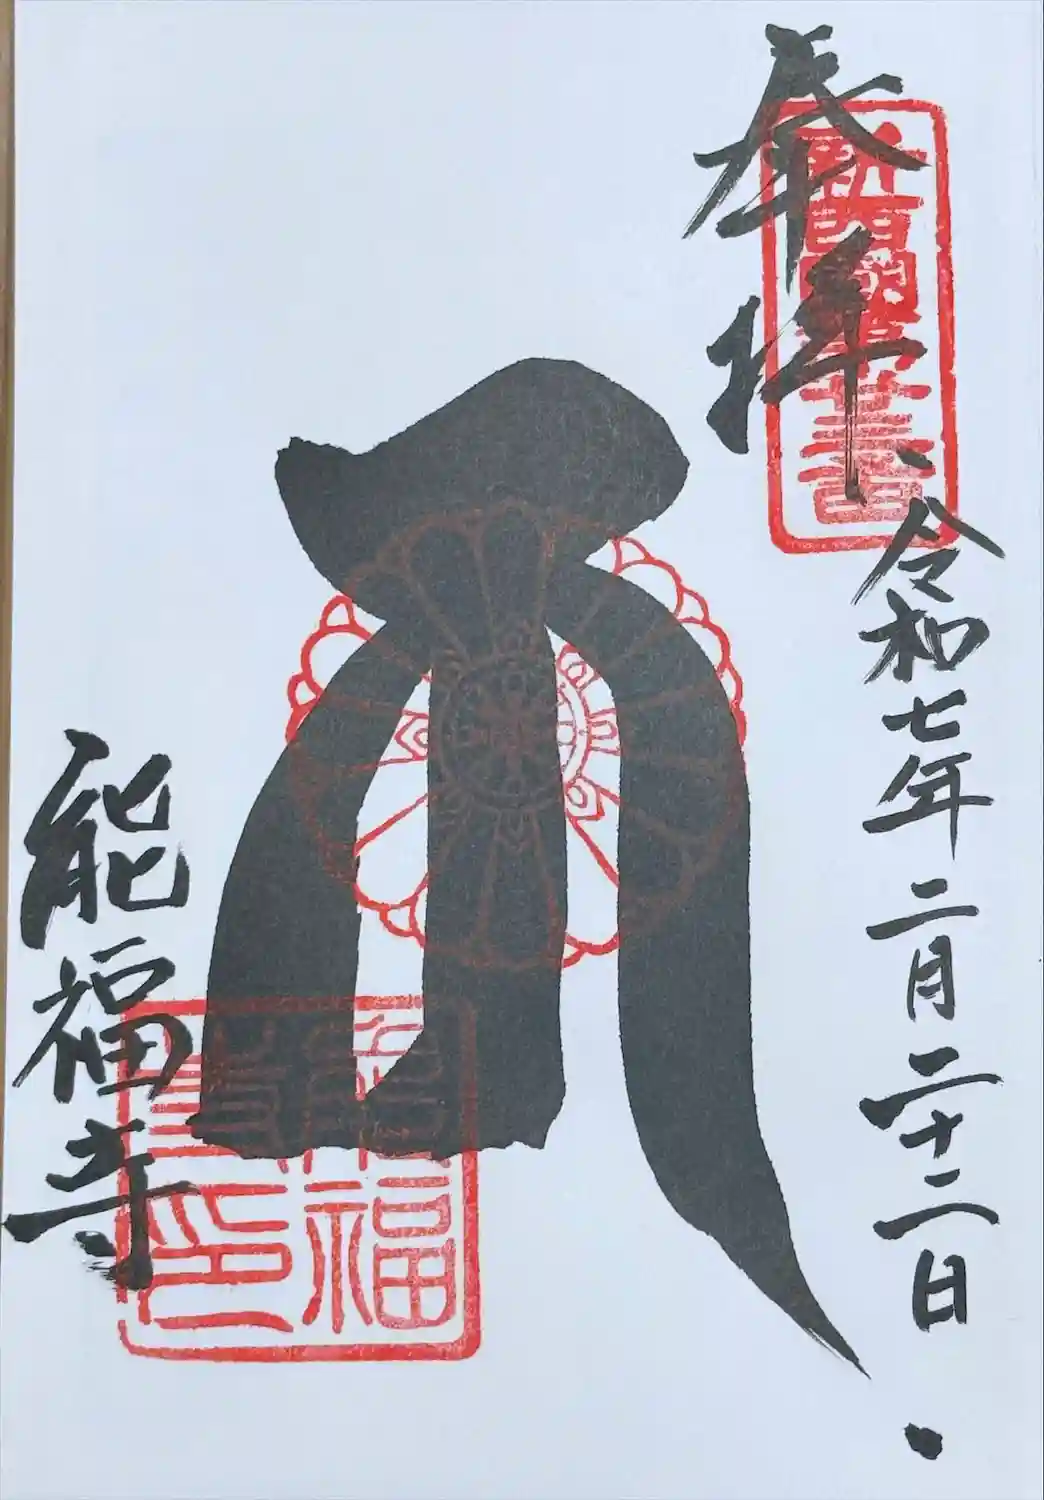 奉拝
新西國
令和七年二月二十二日
能福寺
能福
寺印